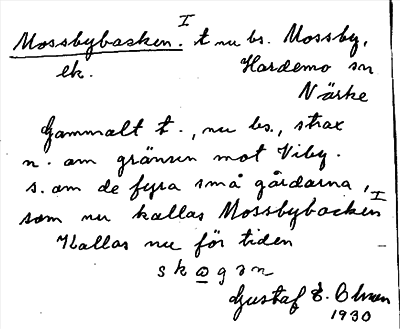 I
Mossbybacken. t nu bs. Mossby,
ek. Hardemo sn
Närke
Gammalt t., nu bs., strax
n. om gränsen mot Viby.
s. om de fyra små gårdarna,
som nu kallas Mossbybacken I
Kallas nu för tiden
skogən
Gustaf E. Olsson
1930